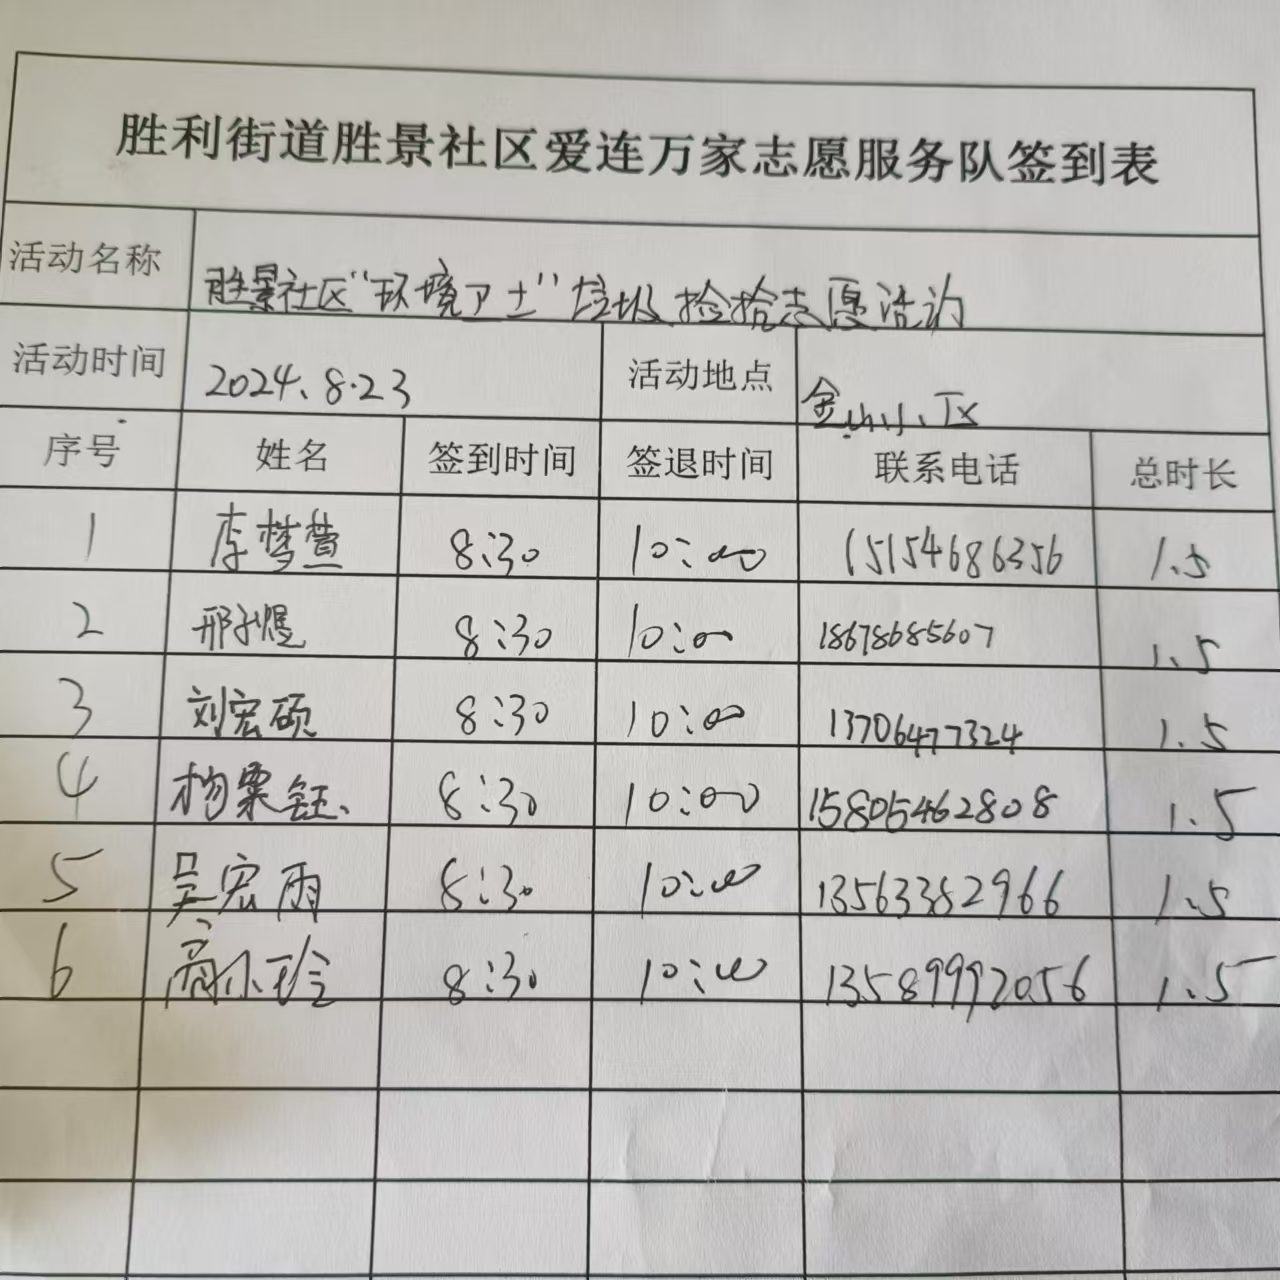 胜利街道胜景社区爱连万家志愿服务队签到表
活动名称 胜景社区“环境卫士”垃圾捡拾志愿活动
活动时间 2024.8.23 活动地点 金山小区
序号 姓名 签到时间 签退时间 联系电话 总时长
1 李梦萱 8:30 10:00 15154686356 1.5
2 8:30 10:00 18678685607 1.5
3 刘宏硕 8:30 10:00 13706477324 1.5
4 杨粟钰 8:30 10:00 15805462808 1.5
5 吴宏雨 8:30 10:00 13563382966 1.5
6 8:30 10:00 13589992056 1.5